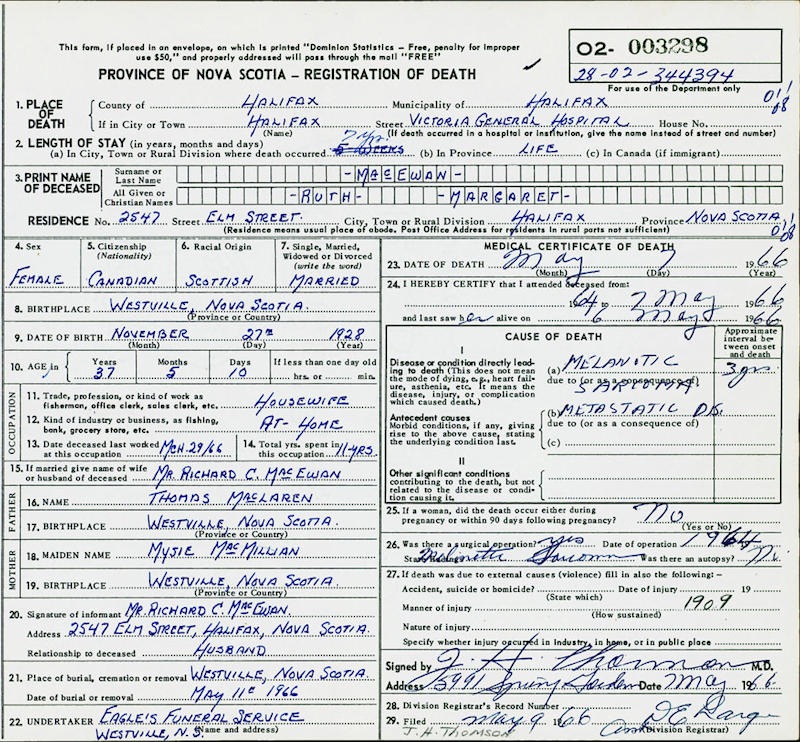 This form, if placed in an envelope, on which is printed "Dominion Statistics – Free, penalty for improper
use $50," and properly addressed will pass through the mail "FREE"
PROVINCE OF NOVA SCOTIA – REGISTRATION OF DEATH
02- 003298
28-02-344394
For use of the Department only
1. PLACE OF DEATH
County of HALIFAX Municipality of HALIFAX
If in City or Town HALIFAX Street VICTORIA GENERAL HOSPITAL House No.
(Name) (If death occurred in a hospital or institution, give the name instead of street and number)
2. LENGTH OF STAY (in years, months and days)
(a) In City, Town or Rural Division where death occurred 5 WEEKS (b) In Province LIFE (c) In Canada (if immigrant)
3. PRINT NAME OF DECEASED
Surname or Last Name -MACEWAN-
All Given or Christian Names -RUTH- MARGARET-
RESIDENCE No. 2547 Street ELM STREET City, Town or Rural Division HALIFAX Province NOVA SCOTIA
(Residence means usual place of abode. Post Office Address for residents in rural parts not sufficient)
4. Sex FEMALE
5. Citizenship (Nationality) CANADIAN
6. Racial Origin SCOTTISH
7. Single, Married, Widowed or Divorced (write the word) MARRIED
8. BIRTHPLACE WESTVILLE, NOVA SCOTIA.
(Province or Country)
9. DATE OF BIRTH NOVEMBER 27TH 1928
(Month) (Day) (Year)
10. AGE in Years 37 Months 5 Days 10 If less than one day old
hrs. or min.
OCCUPATION
11. Trade, profession, or kind of work as
fisherman, office clerk, sales clerk, etc. HOUSEWIFE
12. Kind of industry or business, as fishing,
bank, grocery store, etc. AT-HOME
13. Date deceased last worked at this occupation MCH.29/66
14. Total yrs. spent in this occupation 11 YRS.
15. If married give name of wife
or husband of deceased MR. RICHARD C. MACEWAN
FATHER
16. NAME THOMAS MACLAREN
17. BIRTHPLACE WESTVILLE, NOVA SCOTIA.
(Province or Country)
MOTHER
18. MAIDEN NAME MYSIE MACMILLIAN
19. BIRTHPLACE WESTVILLE, NOVA SCOTIA.
(Province or Country)
20. Signature of informant MR. RICHARD C. MACEWAN.
Address 2547 ELM STREET, HALIFAX, NOVA SCOTIA.
Relationship to deceased HUSBAND
21. Place of burial, cremation or removal WESTVILLE, NOVA SCOTIA.
Date of burial or removal MAY 11 1966
22. UNDERTAKER EAGLE'S FUNERAL SERVICE
WESTVILLE, N.S. (Name and address)
MEDICAL CERTIFICATE OF DEATH
23. DATE OF DEATH May 7 1966
(Month) (Day) (Year)
24. I HEREBY CERTIFY that I attended deceased from:
1964 to 7 May 1966
and last saw her alive on 6 May 1966
CAUSE OF DEATH
Approximate interval between onset and death
I
Disease or condition directly leading to death (This does not mean
the mode of dying, e.g., heart failure, asthenia, etc. It means the
disease, injury, or complication
which caused death.)
(a) MELANOTIC
due to (or as a consequence of) SARCOMA
3 yrs
Antecedent causes
Morbid conditions, if any, giving
rise to the above cause, stating
the underlying condition last.
(b) METASTATIC DIS.
due to (or as a consequence of)
(c)
II
Other significant conditions
contributing to the death, but not
related to the disease or condition causing it.
25. If a woman, did the death occur either during
pregnancy or within 90 days following pregnancy? No
(Yes or No)
26. Was there a surgical operation? yes Date of operation 1964
State findings Melanotic Sarcoma Was there an autopsy? No
27. If death was due to external causes (violence) fill in also the following –
Accident, suicide or homicide? Date of injury 19
(State which)
Manner of injury 1909
(How sustained)
Nature of injury
Specify whether injury occurred in Industry, in home, or in public place
Signed by J. H. Thomson M.D.
Address 5991 Spring Garden Date 7 May 1966
28. Division Registrar's Record Number
29. Filed May 9 1966
(Division Registrar)
J. H. THOMSON